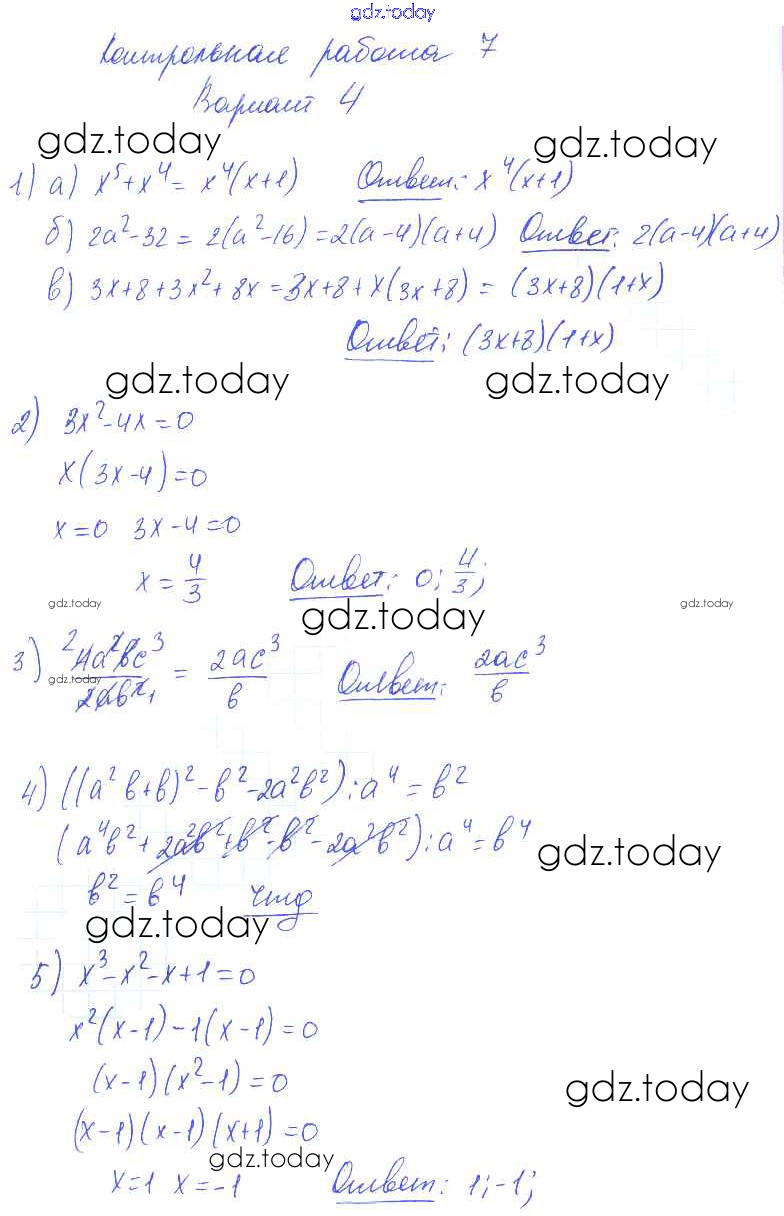 gdz.today
Контрольная работа 7
Вариант 4
gdz.today gdz.today
1) а) x⁵+x⁴= x⁴(x+1) Ответ: x⁴(x+1)
б) 2a²-32 = 2(a²-16)=2(a-4)(a+4) Ответ: 2(a-4)(a+4)
в) 3x+8+3x²+8x=3x+8+x(3x+8) = (3x+8)(1+x)
Ответ: (3x+8)(1+x)
gdz.today gdz.today
2) 3x²-4x=0
x(3x-4)=0
x=0 3x-4=0
x = 4/3 Ответ: 0; 4/3;
gdz.today gdz.today gdz.today
3) = 2ac³/в Ответ: 2ac³/в
gdz.today
4) ((a²в+в)²-в²-2a²в²):a⁴=в²
(a⁴в²+2a²в²+в²-в²-2a²в²):a⁴=в⁴
gdz.today
в²=в⁴ чтд
gdz.today
5) x³-x²-x+1=0
x²(x-1)-1(x-1)=0
(x-1)(x²-1)=0
gdz.today
(x-1)(x-1)(x+1)=0
gdz.today
x=1 x=-1 Ответ: 1;-1;